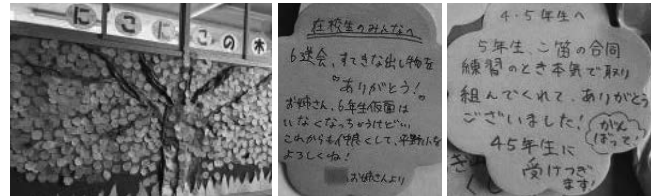 にこにこの木
在校生のみんなへ
6送会、すてきな出し物を
"ありがとう!"
お姉さん、6年生仮面は
いなくなっちゃうけどい
これからも仲良くして、平野小を
よろしくね!
お姉さんより
4・5年生へ
5年生、こ笛の合同
練習のとき本気で取り
組んでくれて、ありがとう
ございました!
がん
ばって!
45年生に
受けつぎ
ます!